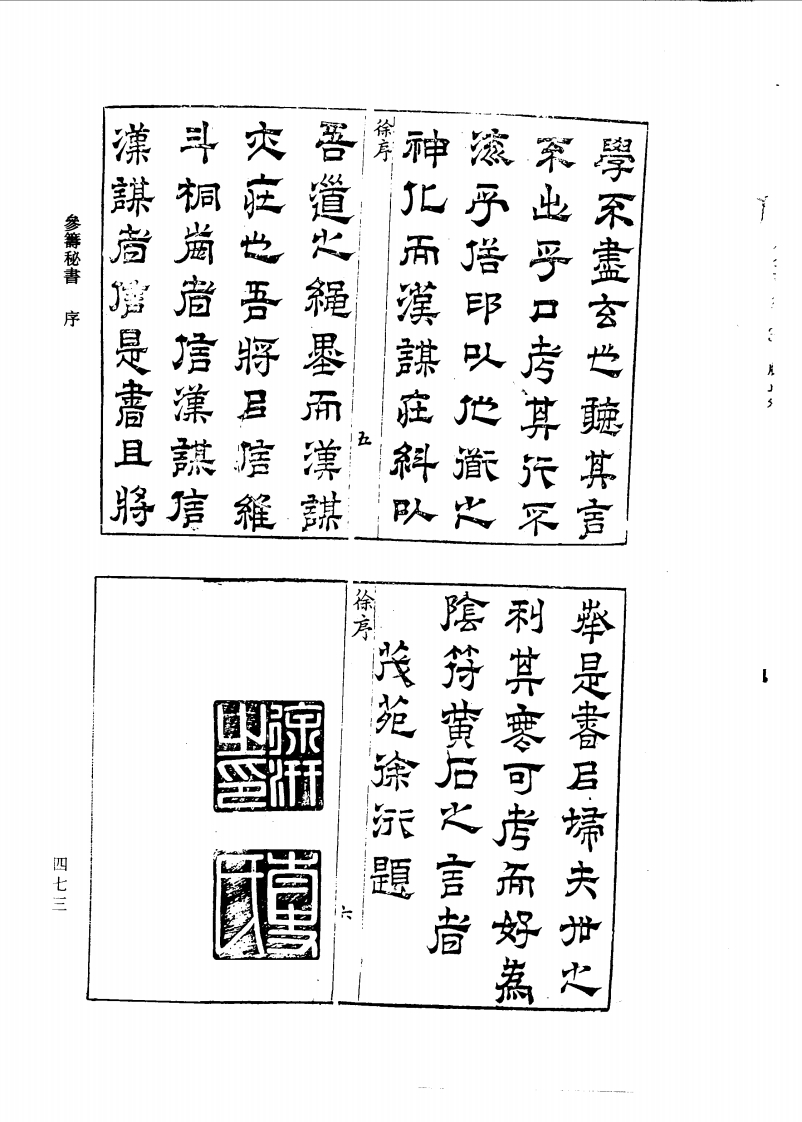 學不盡玄也聽其言
不出乎口考其行不
乎以他之
神化而漢謀在糾以
徐序
五
吾道之繩墨而漢謀
在也吾將㠯信維
斗桐者信漢謀信
漢謀者信是書且將
參籌秘書 序
舉是書㠯歸夫世之
利其可考而好為
陰符黃石之言者
茂苑徐汧題
徐序
六
徐汧之印
四七三